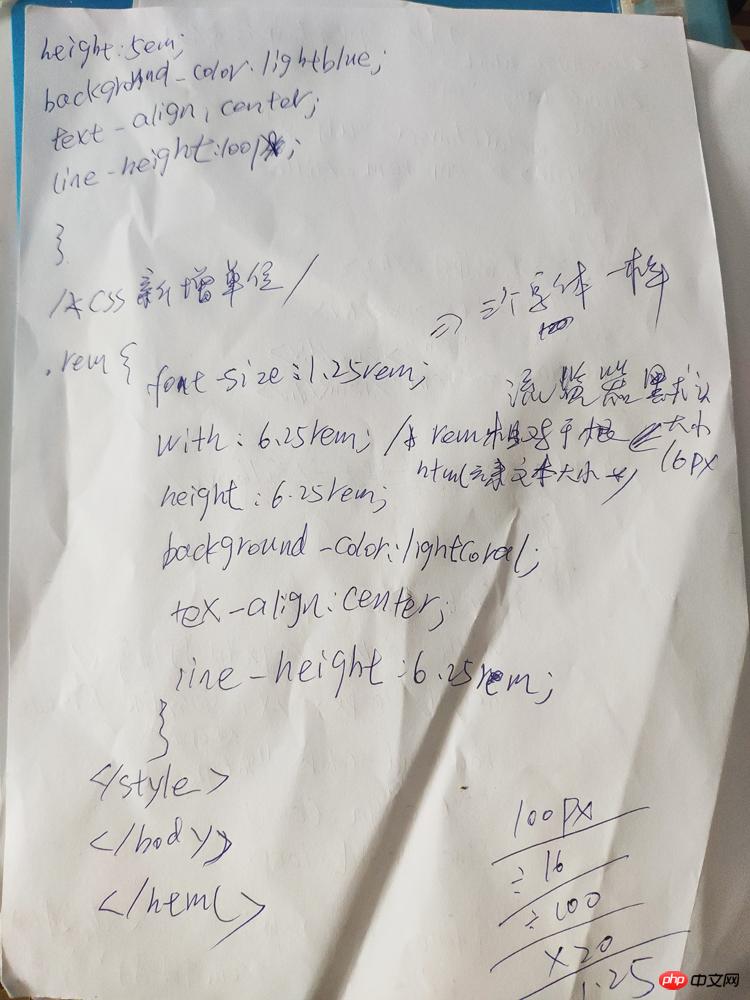 height:5em;
background-color:lightblue;
text-align,center;
line-height:100px;
}
/* CSS新增单位/
=> 三个字体一样
.rem {
font-size:1.25rem;
浏览器默认
大小
16px
with:6.25rem; /* rem相对于根
html元素文本大小 */
height:6.25rem;
background-color:lightcoral;
tex-align:center;
line-height:6.25rem;
}
</style>
</body>
</html>
100px
÷16
÷100
×20
1.25
php 中文网